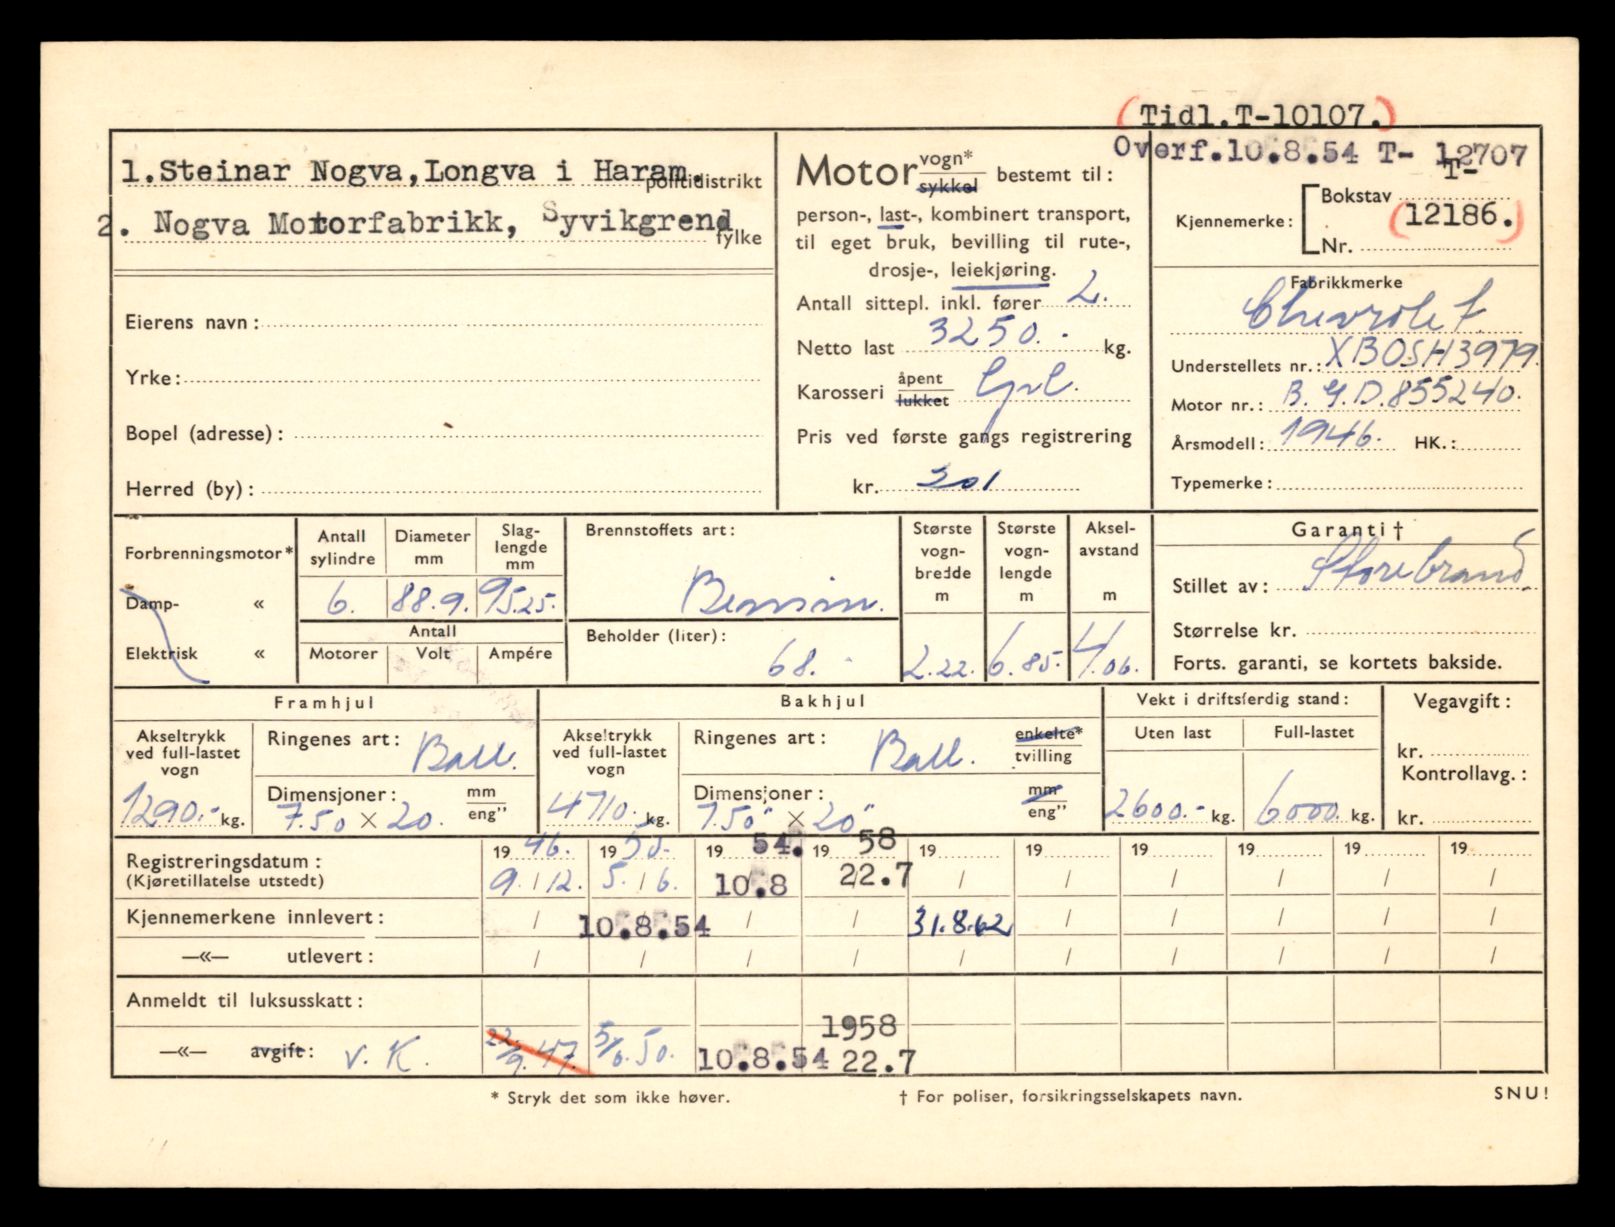 (Tidl.T-10107.)
Overf.10.8.54 T- 12707
1.Steinar Nogva,Longva i Haram. politidistrikt
2. Nogva Motorfabrikk, Syvikgrend fylke
Eierens navn:
Yrke:
Bopel (adresse):
Herred (by):
Motor vogn* sykkel bestemt til:
person-, last-, kombinert transport,
til eget bruk, bevilling til rute-,
drosje-, leiekjøring.
Antall sittepl. inkl. fører 2.
Netto last 3250.- kg.
Karosseri åpent lukket
Pris ved første gangs registrering
kr. 301
Kjennemerke: Bokstav T-
Nr. (12186.)
Fabrikkmerke
Chevrolet.
Understellets nr.: XBOSH3979.
Motor nr.: B.G.D.855240.
Årsmodell: 1946. HK.:
Typemerke:
Forbrenningsmotor*
Damp- «
Elektrisk «
Antall sylindre Diameter mm Slag-lengde mm
6. 88.9. 95.25.
Antall
Motorer Volt Ampére
Brennstoffets art:
Bensin.
Beholder (liter):
68.-
Største vogn-bredde m Største vogn-lengde m Aksel-avstand m
2.22. 6.85. 4.06.
Garanti †
Stillet av: Storebrand.
Størrelse kr.
Forts. garanti, se kortets bakside.
Framhjul
Akseltrykk ved full-lastet vogn
1290.- kg.
Ringenes art: Ball.
Dimensjoner: mm eng”
7.50 × 20.
Bakhjul
Akseltrykk ved full-lastet vogn
4710. kg.
Ringenes art: Ball. enkelte* tvilling
Dimensjoner: mm eng”
7.50" × 20"
Vekt i driftsferdig stand:
Uten last Full-lastet
2600.- kg. 6000 kg.
Vegavgift:
kr.
Kontrollavg.:
kr.
Registreringsdatum: 1946. 1950. 19 54. 19 58 19 19 19 19 19 19
(Kjøretillatelse utstedt) 9./12. 5./6. 10.8 22.7 / / / / / /
Kjennemerkene innlevert: / 10.8.54 / / 31.8.62 / / / / /
—«— utlevert: / / / / / / / / / /
Anmeldt til luksusskatt:
1958
—«— avgift: v. K. 22./9.47. 5/6.50. 10.8.54 22.7
* Stryk det som ikke høver.
† For poliser, forsikringsselskapets navn.
SNU!